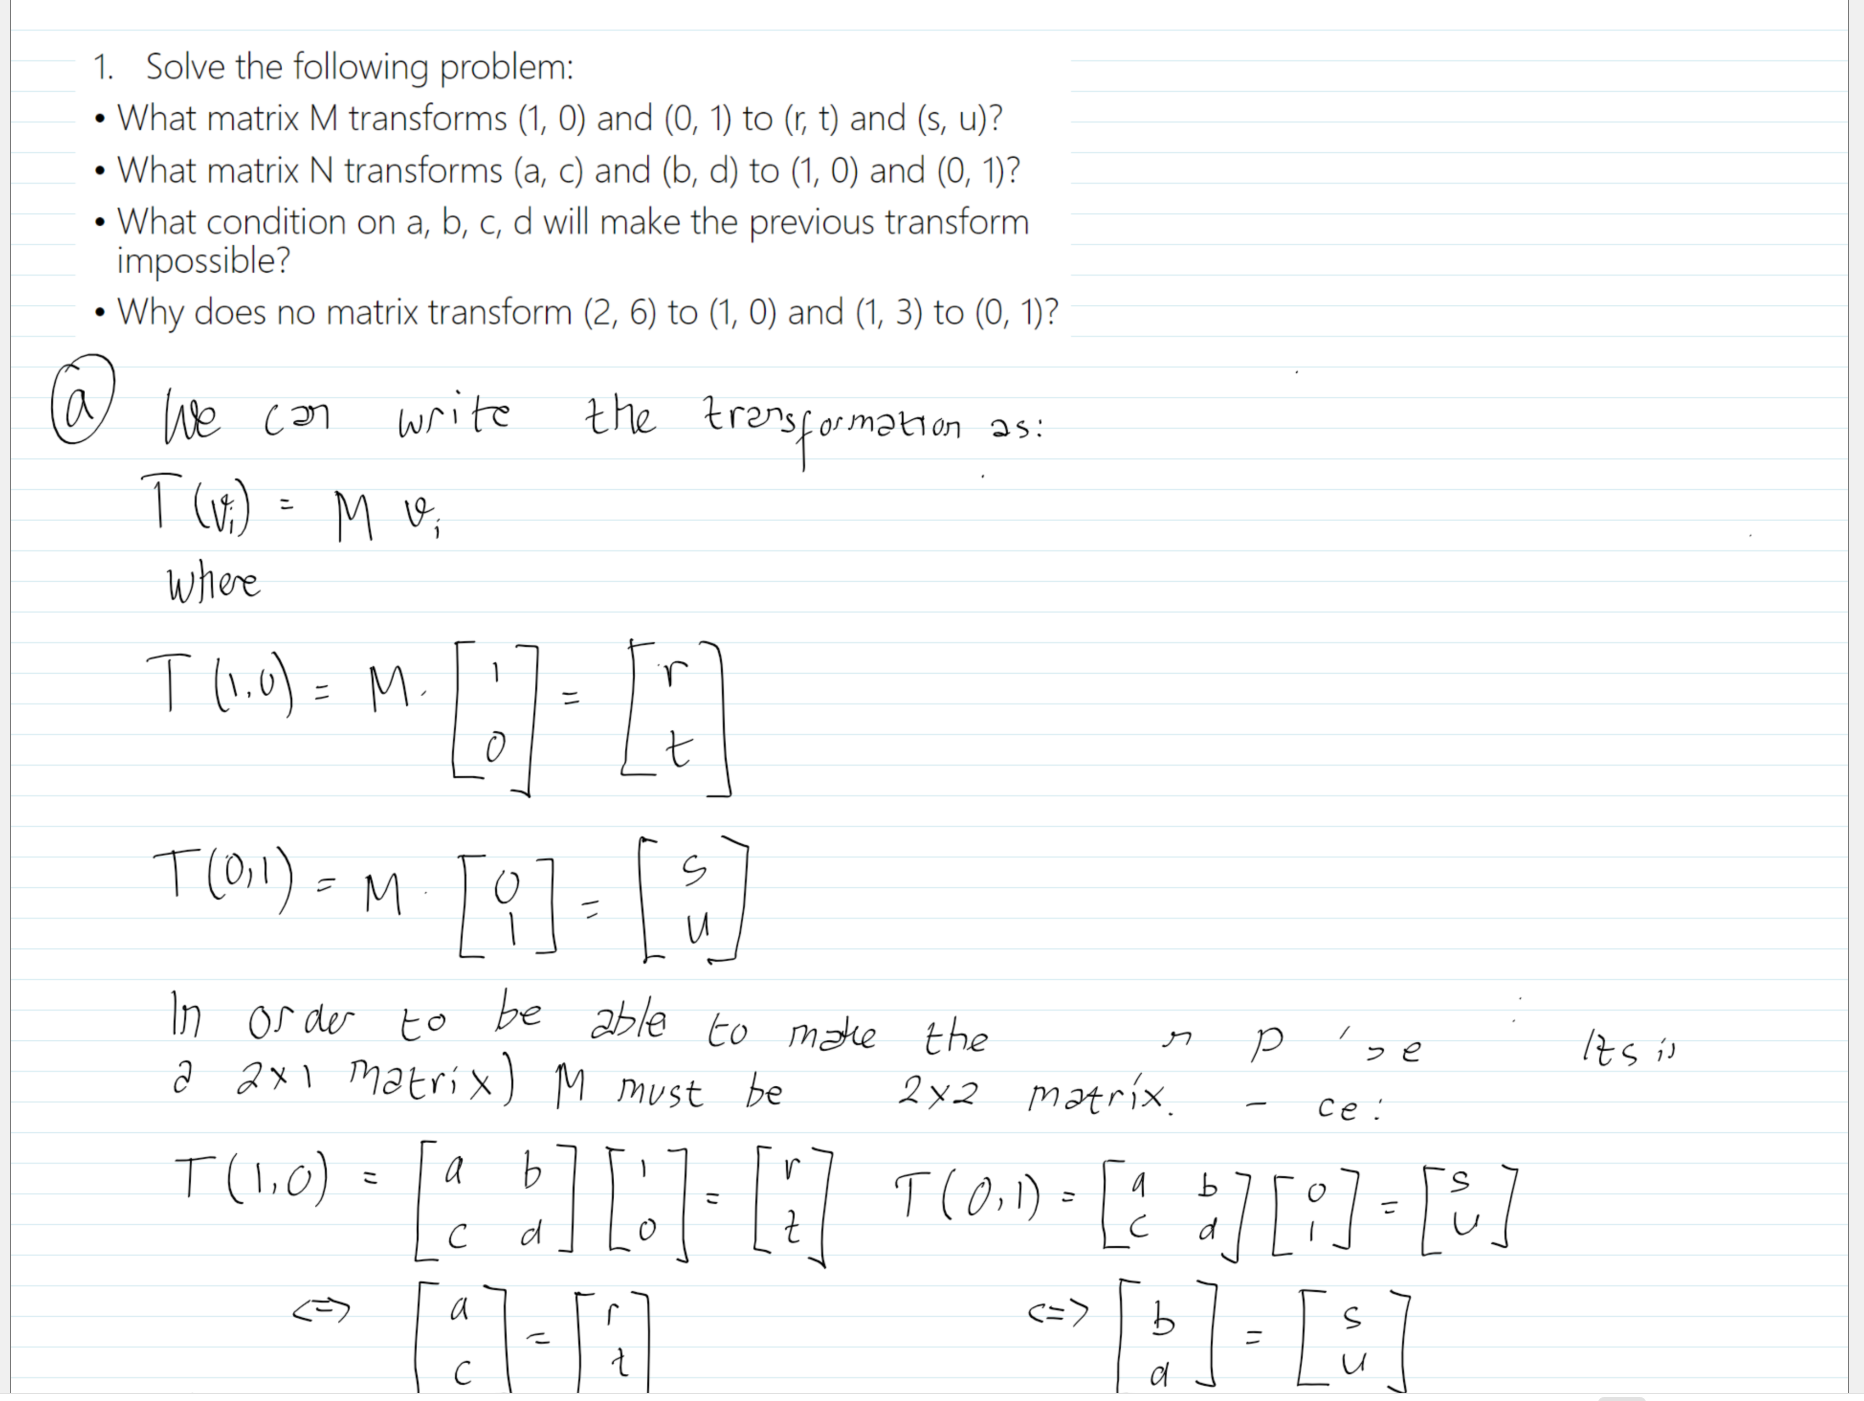 1. Solve the following problem:
• What matrix M transforms (1, 0) and (0, 1) to (r, t) and (s, u)?
• What matrix N transforms (a, c) and (b, d) to (1, 0) and (0, 1)?
• What condition on a, b, c, d will make the previous transform
impossible?
• Why does no matrix transform (2, 6) to (1, 0) and (1, 3) to (0, 1)?
(a) We can write the transformation as:
T(vᵢ) = M vᵢ
where
T(1,0) = M · [1 0] = [r t]
T(0,1) = M · [0 1] = [s u]
In order to be able to make the
a 2x1 matrix) M must be 2x2 matrix.
T(1,0) = [a b c d] [1 0] = [r t] T(0,1) = [a b c d] [0 1] = [s u]
<=> [a c] = [r t] <=> [b d] = [s u]